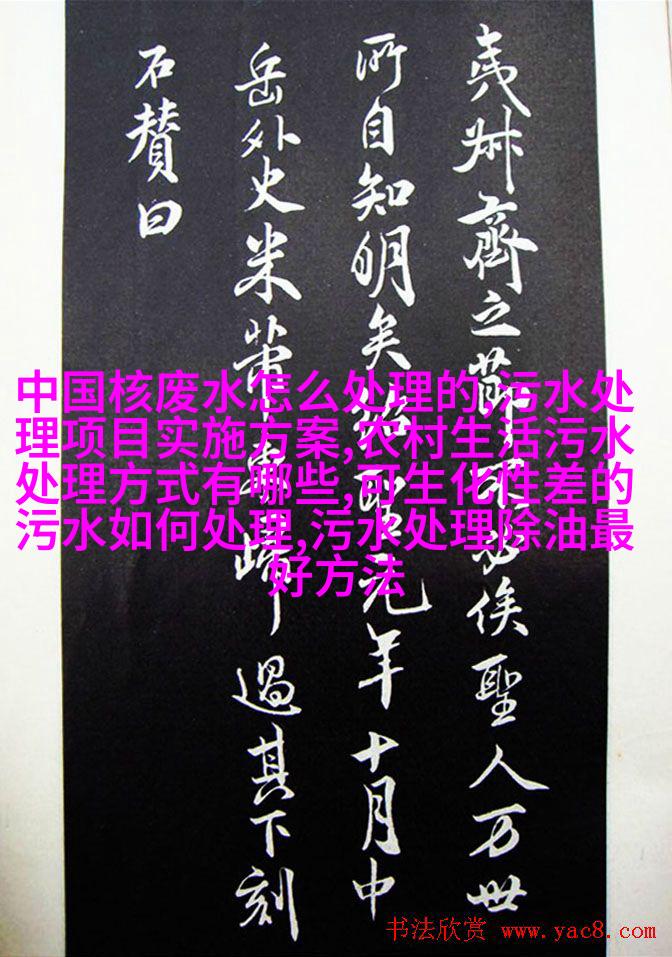 夷叔齊之節必俟聖人万世
所自知明矣紹聖元年十月中
岳外史米芾東歸過其下刻
石賛曰
中国核废水怎么处理的,污水处
理项目实施方案,农村生活污水
处理方式有哪些,可生化性差的
污水如何处理,污水处理除油最
好方法
书法欣赏 www.yac8.com